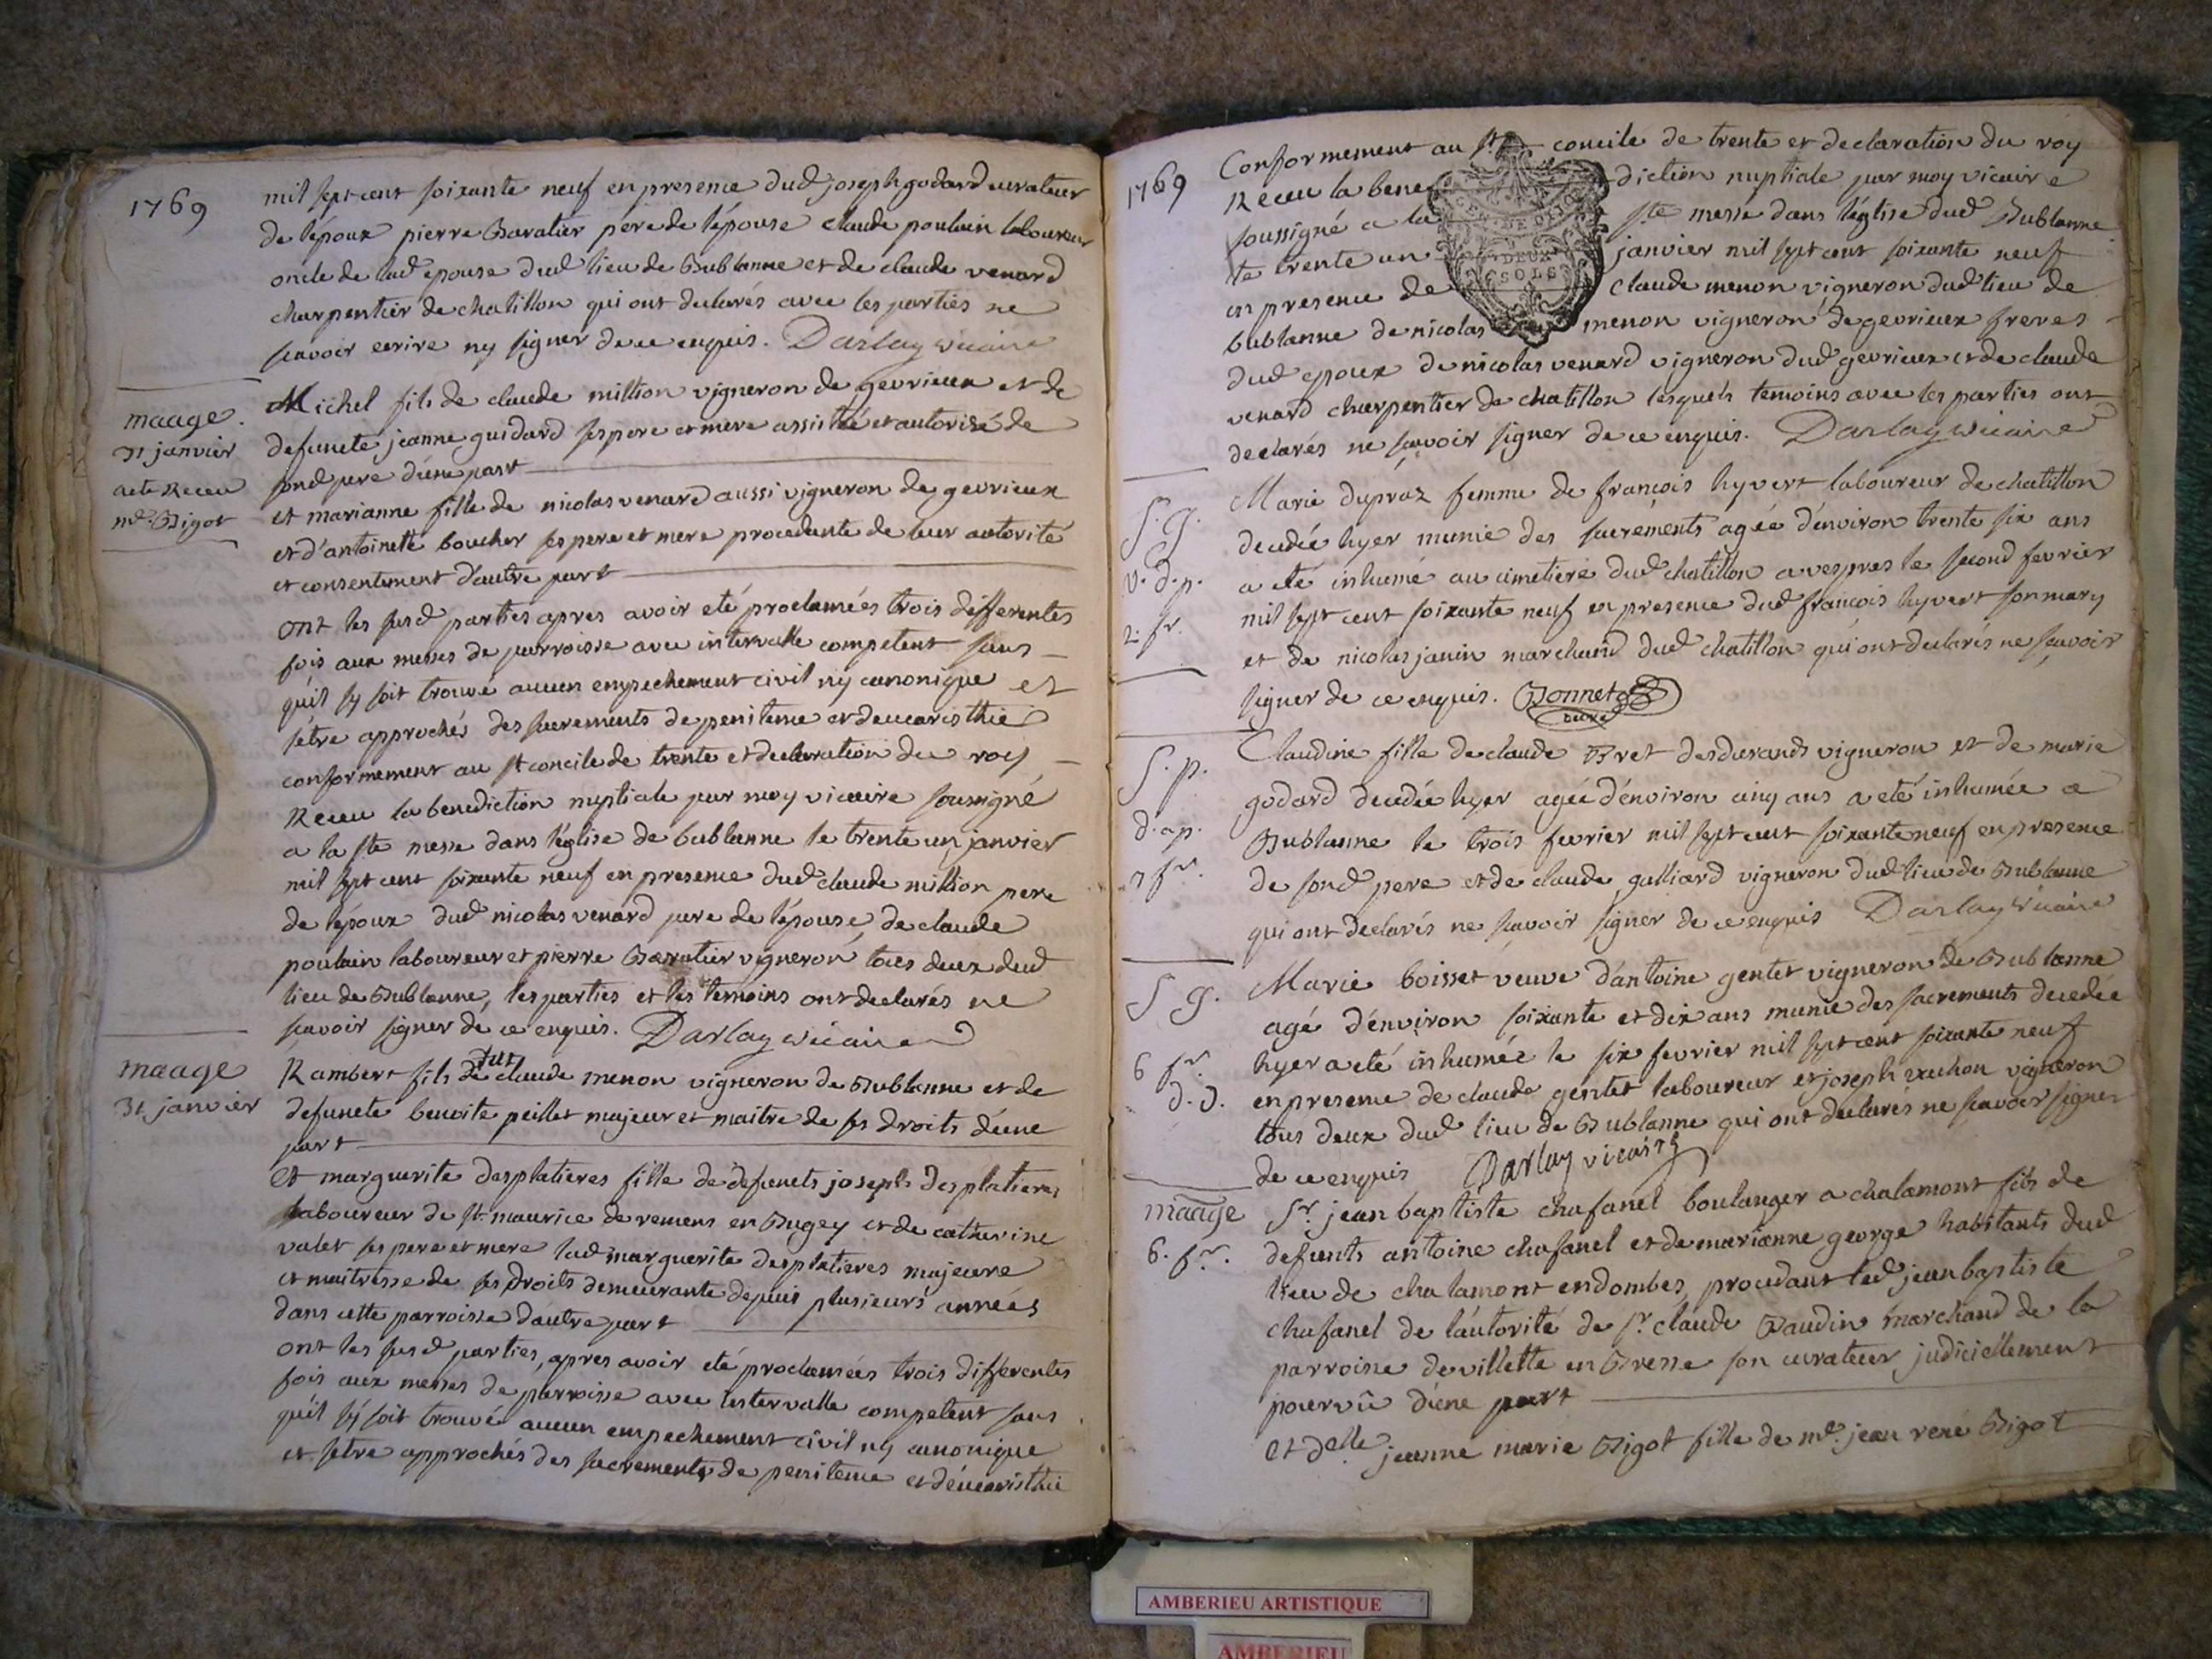 1769
mil sept cent soixante neuf en presence dud joseph godard curateur
de lépoux pierre Baratier pere de lépouse claude poulain laboureur
oncle de lad epouse dud lieu de Bublanne et de claude venard
charpentier de chatillon qui ont declarés avec les parties ne
scavoir ecrire ny signer de ce enquis. Darlay vicaire
maage.
31 janvier
acte Receu
me. Bigot
Michel fils de claude million vigneron de gevrieux et de
defuncte jeanne guidard ses pere et mere assisté et autorisé de
sond pere d'une part
et marianne fille de nicolas venard aussi vigneron de gevrieux
et d'antoinette boucher ses pere et mere procedante de leur autorité
et consentement d'autre part
ont les susd parties apres avoir eté proclamées trois differentes
fois aux messes de parroisse avec intervalle competent sans
quil sy soit trouvé aucun empechement civil ny canonique et
sétre approchés des sacrements de penitence et deucaristhie
conformement au st concile de trente et declaration du roy
Receu la benediction nuptiale par moy vicaire soussigné
a la ste messe dans léglise de bublanne le trente un janvier
mil sept cent soixante neuf en presence dud claude million pere
de lépoux dud nicolas venard pere de lépouse, de claude
poulain laboureur et pierre Baratier vigneron tous deux dud
lieu de Bublanne, les parties et les temoins ont declarés ne
scavoir signer de ce enquis. Darlay vicaire
maage
31 janvier
Rambert fils de fut claude menon vigneron de Bublanne et de
defuncte benoite peillet majeur et maitre de ses droits d'une
part
Et marguerite desplatieres fille de defuncts joseph desplatieres
laboureur de st. maurice de remens en Bugey et de catherine
valet ses pere et mere lad marguerite desplatieres majeure
et maitresse de ses droits demeurante depuis plusieurs années
dans cette parroisse d'autre part
ont les susd parties, apres avoir eté proclamées trois differentes
fois aux messes de parroisse avec intervalle competent sans
quil sy soit trouvé aucun empechement civil ny canonique
et sétre approchés des sacrements de penitence et d'eucaristhie
1769
Conformement au st concile de trente et declaration du roy
Receu la benediction nuptiale par moy vicaire
soussigné a la ste messe dans léglise dud Bublanne
le trente un janvier mil sept cent soixante neuf
en presence de claude menon vigneron dud lieu de
bublanne de nicolas menon vigneron de gevrieux freres
DEUX
SOLS
dud epoux de nicolas venard vigneron dud gevrieux et de claude
venard charpentier de chatillon lesquels temoins avec les parties ont
declarés ne scavoir signer de ce enquis. Darlay vicaire
S. g.
v. d. p.
2. fr.
Marie dupraz femme de francois hyvert laboureur de chatillon
decedée hyer munie des sacrements agée d'environ trente six ans
a eté inhumé au cimetiere dud chatillon a vespres le second fevrier
mil sept cent soixante neuf en presence dud francois hyvert son mary
et de nicolas janin marchand dud chatillon qui ont declarés ne scavoir
signer de ce enquis. Bonnet
curé
S. p.
d. a p.
3 fr.
Claudine fille de claude Bret desdurands vigneron et de marie
godard decedée hyer agée d'environ cinq ans a eté inhumée a
Bublanne le trois fevrier mil sept cent soixante neuf en presence
de sond pere et de claude galliard vigneron dud lieu de Bublanne
qui ont declarés ne scavoir signer de ce enquis Darlay vicaire
S g.
6 fr.
d. d.
Marie boisset veuve d'antoine gentet vigneron de Bublanne
agé d'environ soixante et dix ans munie des sacrements decedée
hyer a eté inhumée le six fevrier mil sept cent soixante neuf
en presence de claude gentet laboureur et joseph vigneron
tous deux dud lieu de Bublanne qui ont declarés ne scavoir signer
de ce enquis Darlay vicaire
maage
6. fr.
Sr. jean baptiste chafanel boulanger a chalamont fils de
defunts antoine chafanel et de marianne george habitants dud
lieu de chalamont en dombes, procedant led jean baptiste
chafanel de l'autorité de sr. claude Baudin marchand de la
parroisse de villette en Bresse son curateur judiciellement
pourvû d'une part
et delle jeanne marie Bigot fille de me. jean rené Bigot
AMBERIEU ARTISTIQUE
AMBERIEU